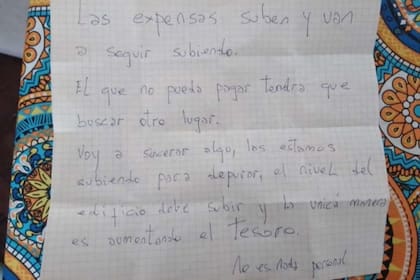 Las expensas suben y van
a seguir subiendo.
El que no pueda pagar tendra que
buscar otro lugar.
Voy a sincerar algo, las estamos
subiendo para depurar, el nivel del
edificio debe subir y la unica manera
es aumentando el tesoro.
No es nada personal